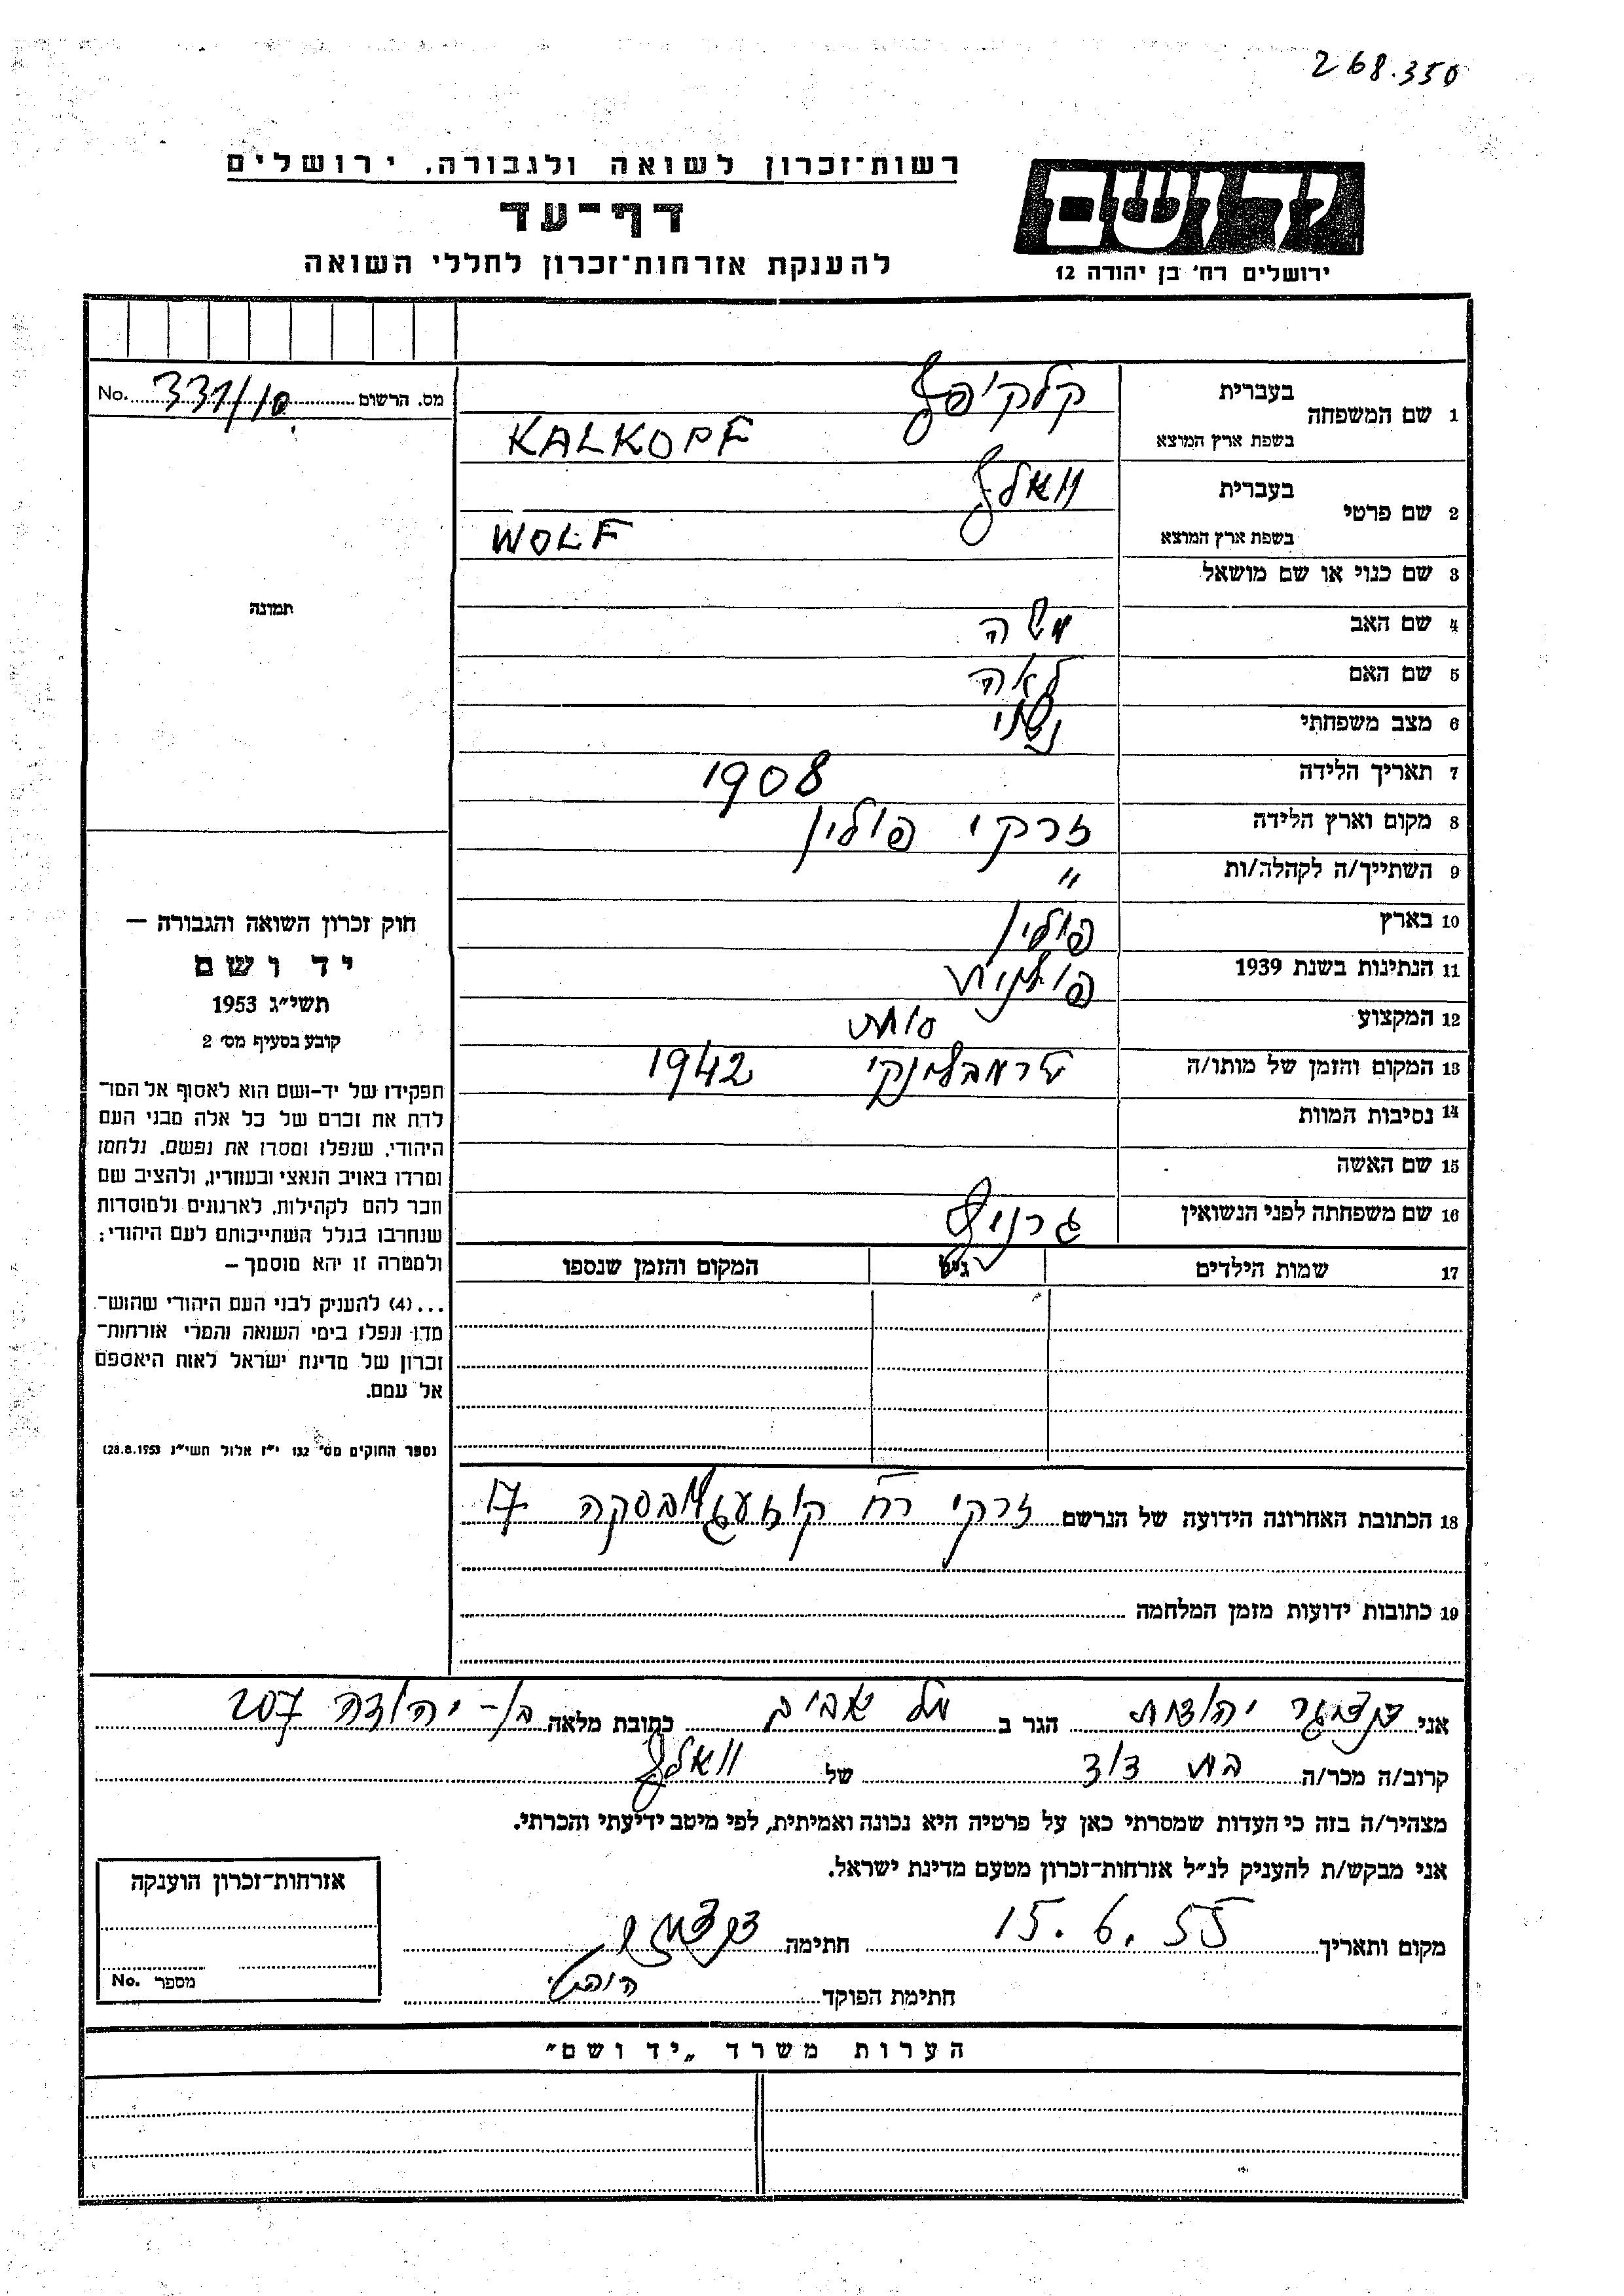 268.350
רשות־זכרון לשואה ולגבורה. ירושלים
דף־עד
להענקת אזרחות־זכרון לחללי השואה
יד ושם
ירושלים רח' בן יהודה 12
מס. הרשום 331/10 No.
1 שם המשפחה בעברית קלקופף
בשפת ארץ המוצא KALKOPF
2 שם פרטי בעברית וואלף
בשפת ארץ המוצא WOLF
3 שם כנוי או שם מושאל
4 שם האב משה
5 שם האם לאה
6 מצב משפחתי נשוי
7 תאריך הלידה 1908
8 מקום וארץ הלידה זרקי פולין
9 השתייך/ה לקהלה/ות "
10 בארץ פולין
11 הנתינות בשנת 1939 פולנית
12 המקצוע סוחר
13 המקום והזמן של מותו/ה טרמבלינקי 1942
14 נסיבות המוות
15 שם האשה
16 שם משפחתה לפני הנשואין
17 שמות הילדים גיל המקום והזמן שנספו
תמונה
חוק זכרון השואה והגבורה —
יד ושם
תשי״ג 1953
קובע בסעיף מס׳ 2
תפקידו של יד-ושם הוא לאסוף אל המו־
לדת את זכרם של כל אלה מבני העם
היהודי, שנפלו ומסרו את נפשם, נלחמו
ומרדו באויב הנאצי ובעוזריו, ולהציב שם
וזכר להם לקהילות, לארגונים ולמוסדות
שנחרבו בגלל השתייכותם לעם היהודי;
ולמטרה זו יהא מוסמך —
...(4) להעניק לבני העם היהודי שהוש־
מדו ונפלו בימי השואה והמרי אזרחות־
זכרון של מדינת ישראל לאות היאספם
אל עמם.
(ספר החוקים מס׳ 132 י״ז אלול תשי״ג 28.8.1953)
18 הכתובת האחרונה הידועה של הנרשם זרקי רח 17
19 כתובות ידועות מזמן המלחמה
אני יהודית הגר ב תל אביב כתובת מלאה בן-יהודה 207
קרוב/ה מכר/ה בת דוד של וואלף
מצהיר/ה בזה כי העדות שמסרתי כאן על פרטיה היא נכונה ואמיתית, לפי מיטב ידיעתי והכרתי.
אני מבקש/ת להעניק לנ״ל אזרחות-זכרון מטעם מדינת ישראל.
מקום ותאריך 15.6.55 חתימה
חתימת הפוקד
אזרחות־זכרון הוענקה
מספר No.
הערות משרד „יד ושם״